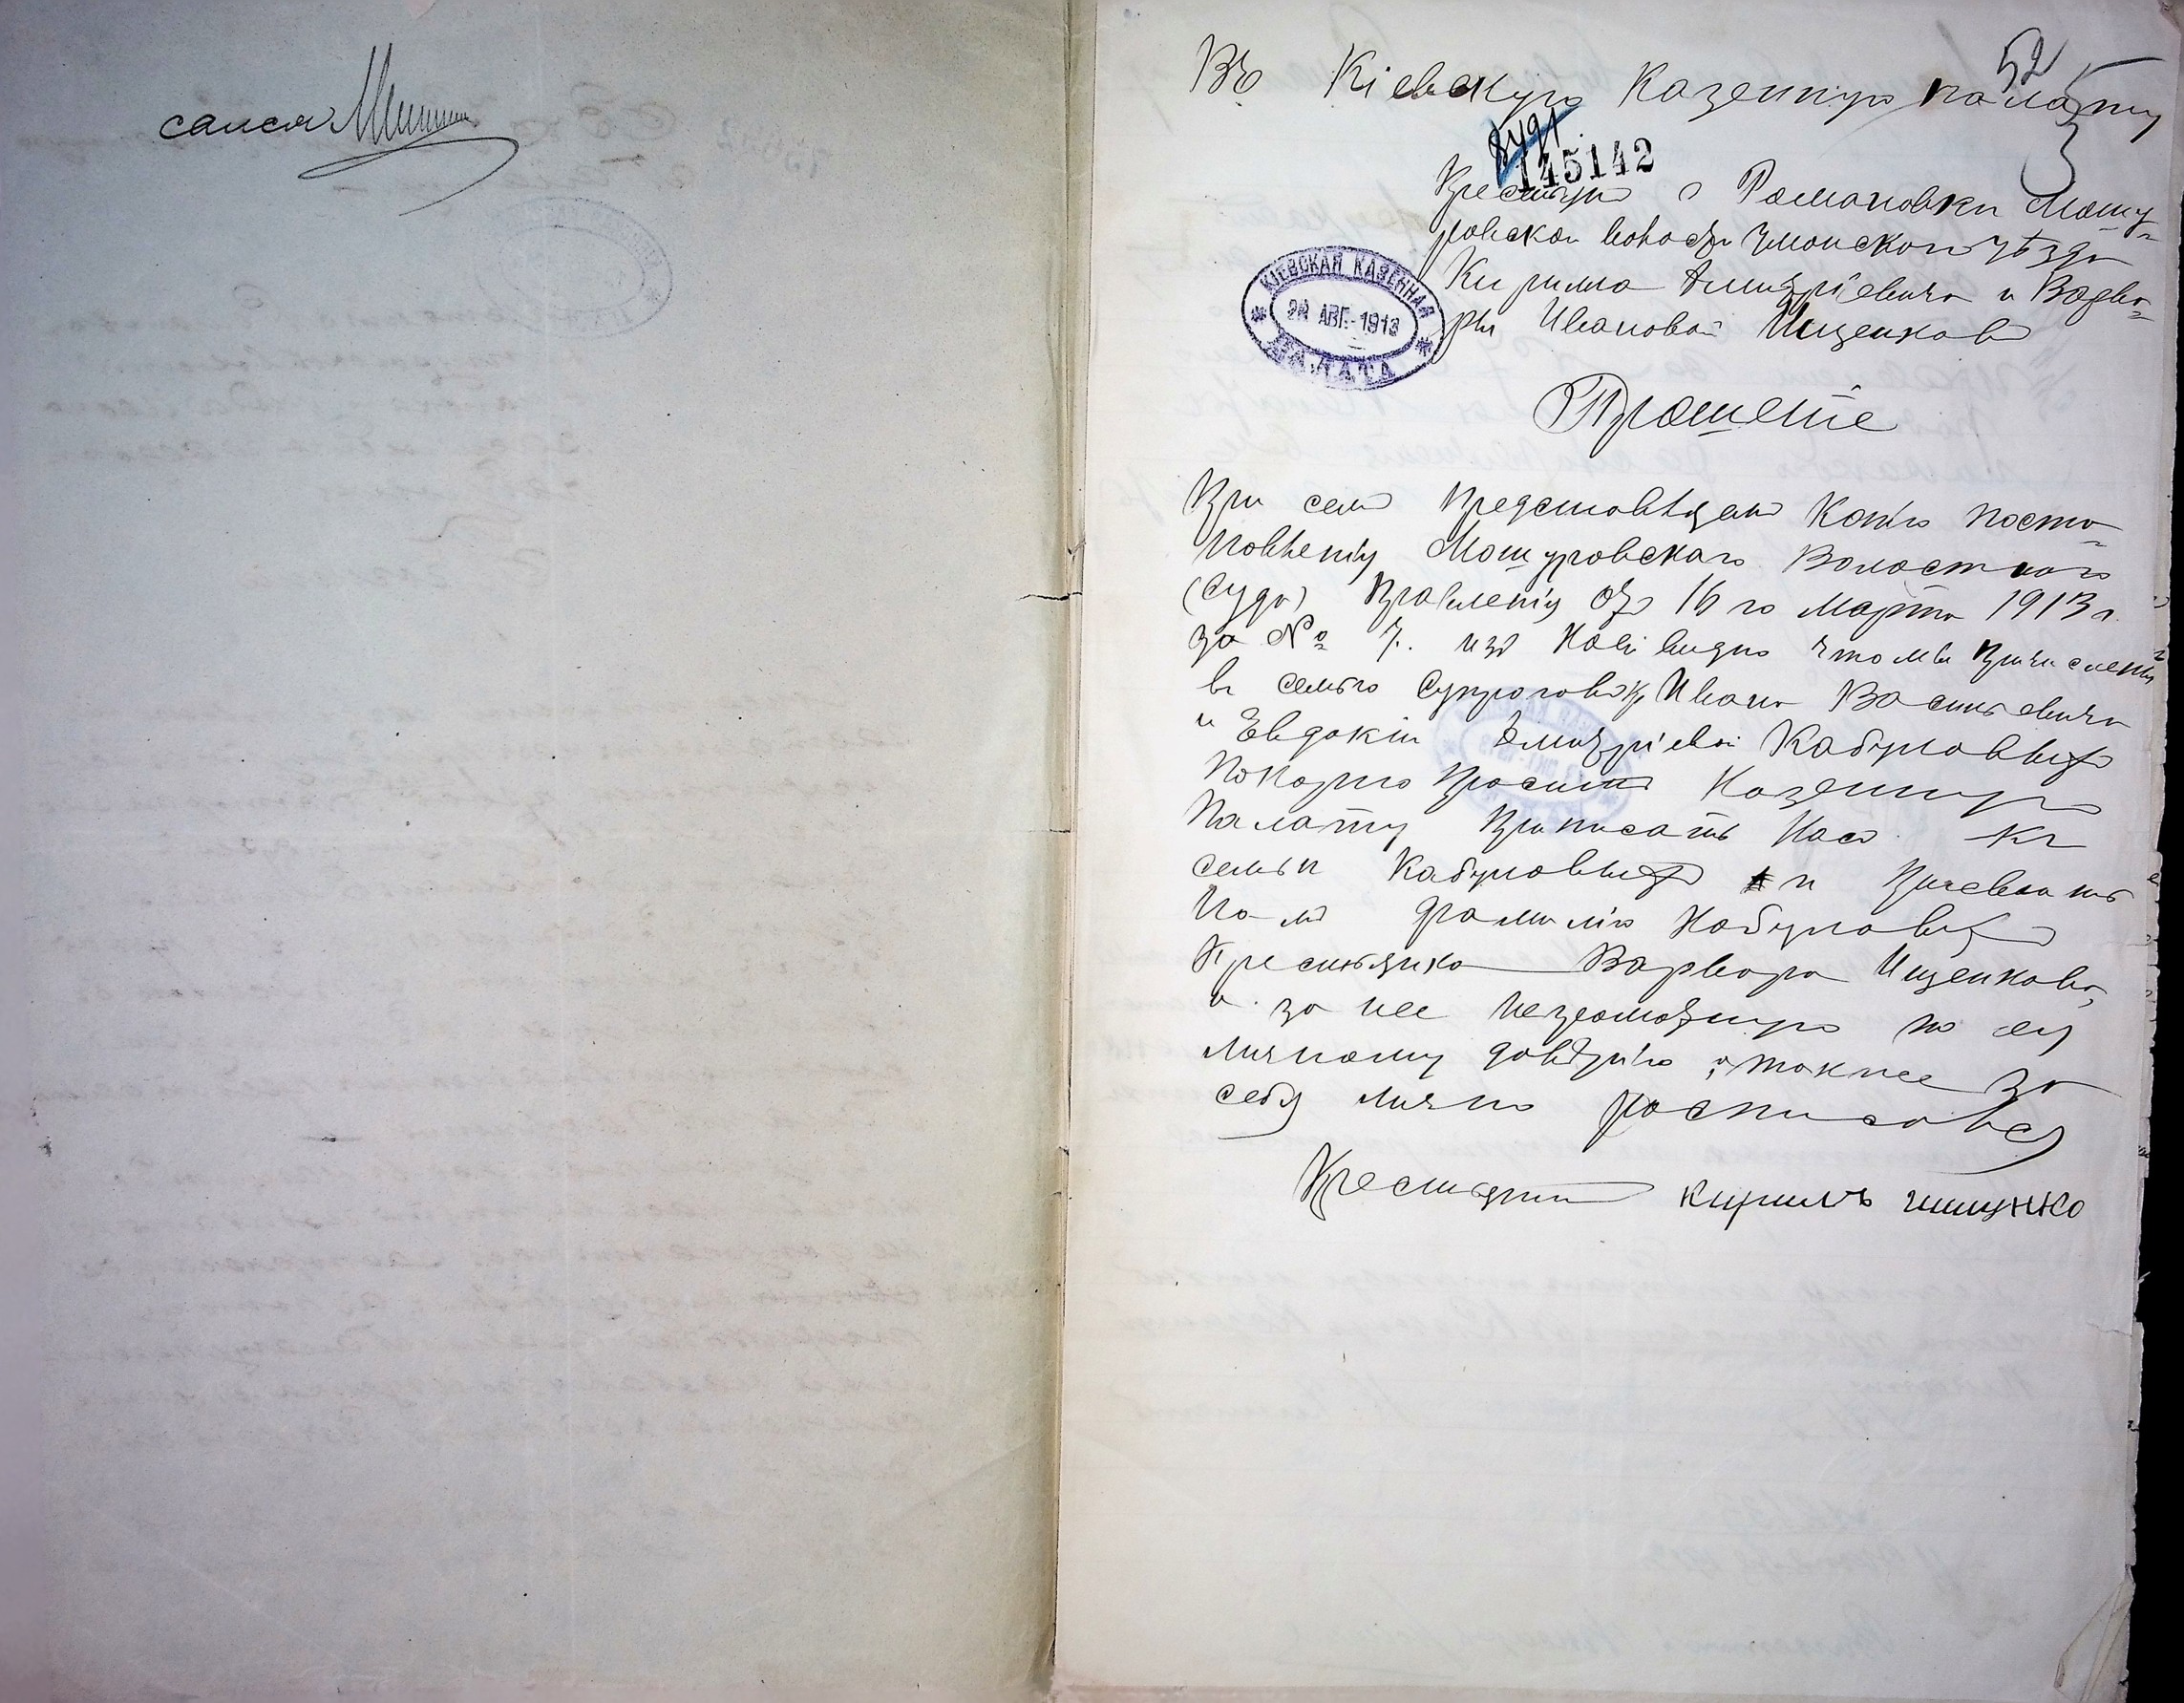 самся
52
Въ Кіевскую Казенную палату
8491
145142
Крестьянъ с Романовки Машу-
ровской волости Уманского уѣзда
Кирилла Дмитріевича и Варва-
ры Ивановой Ищенковъ
КІЕВСКАЯ КАЗЕННАЯ
АВГ. 1913
ПАЛАТА
Прошеніе
При семъ представляемъ Копію поста-
новленія Машуровскаго Волостного
(Суда) Правленія отъ 16 го Марта 1913 г.
за № 7. изъ коей видно что мы причислены
въ семью Супруговъ Ивана Васильевича
и Евдокіи Дмитріевой Кабуловыхъ
Покорно просимъ Казенную
Палату приписать насъ къ
семьи Кабуловыхъ и присвоить
намъ фамилію Кабуловыхъ
Крестьянка Варвара Ищенкова,
а за нее неграмотную по ея
личному довѣрію и также за
себя лично росписался
Крестьянинъ Кирилъ ищунко